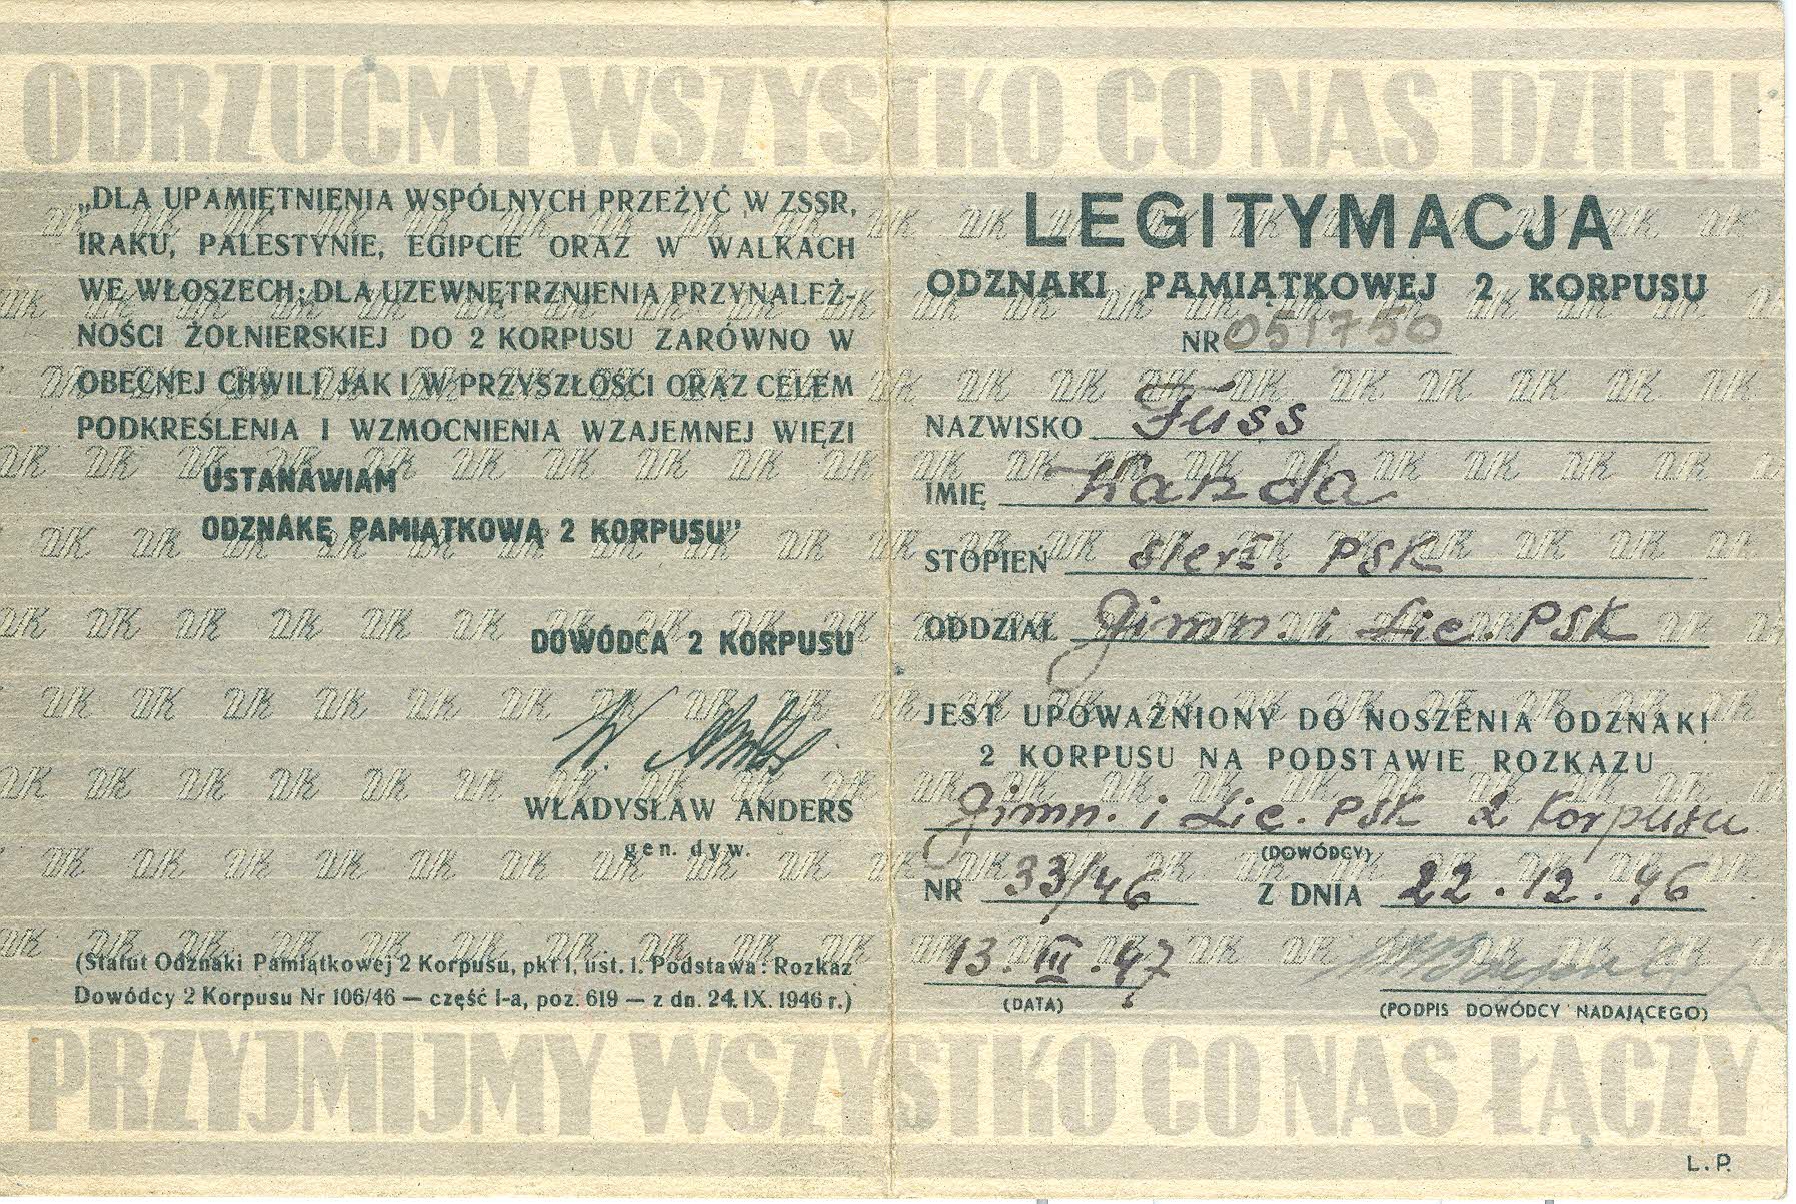 ODRZUĆMY WSZYSTKO CO NAS DZIELI
„DLA UPAMIĘTNIENIA WSPÓLNYCH PRZEŻYĆ W ZSSR,
IRAKU, PALESTYNIE, EGIPCIE ORAZ W WALKACH
WE WŁOSZECH; DLA UZEWNĘTRZNIENIA PRZYNALEŻ-
NOŚCI ŻOŁNIERSKIEJ DO 2 KORPUSU ZARÓWNO W
OBECNEJ CHWILI JAK I W PRZYSZŁOŚCI ORAZ CELEM
PODKREŚLENIA I WZMOCNIENIA WZAJEMNEJ WIĘZI
USTANAWIAM
ODZNAKĘ PAMIĄTKOWĄ 2 KORPUSU”
DOWÓDCA 2 KORPUSU
W. Anders
WŁADYSŁAW ANDERS
gen. dyw.
(Statut Odznaki Pamiątkowej 2 Korpusu, pkt 1, ust. 1. Podstawa: Rozkaz
Dowódcy 2 Korpusu Nr 106/46 — część I-a, poz. 619 — z dn. 24. IX. 1946 r.)
LEGITYMACJA
ODZNAKI PAMIĄTKOWEJ 2 KORPUSU
NR 051750
NAZWISKO Fuss
IMIĘ Wanda
STOPIEŃ sierż. PSK
ODDZIAŁ Gimn. i Lic. PSK
JEST UPOWAŻNIONY DO NOSZENIA ODZNAKI
2 KORPUSU NA PODSTAWIE ROZKAZU
Gimn. i Lic. PSK 2 Korpusu
(DOWÓDCY)
NR 33/46 Z DNIA 22.12.46
13.III.47
(DATA) (PODPIS DOWÓDCY NADAJĄCEGO)
PRZYJMIJMY WSZYSTKO CO NAS ŁĄCZY
L. P.